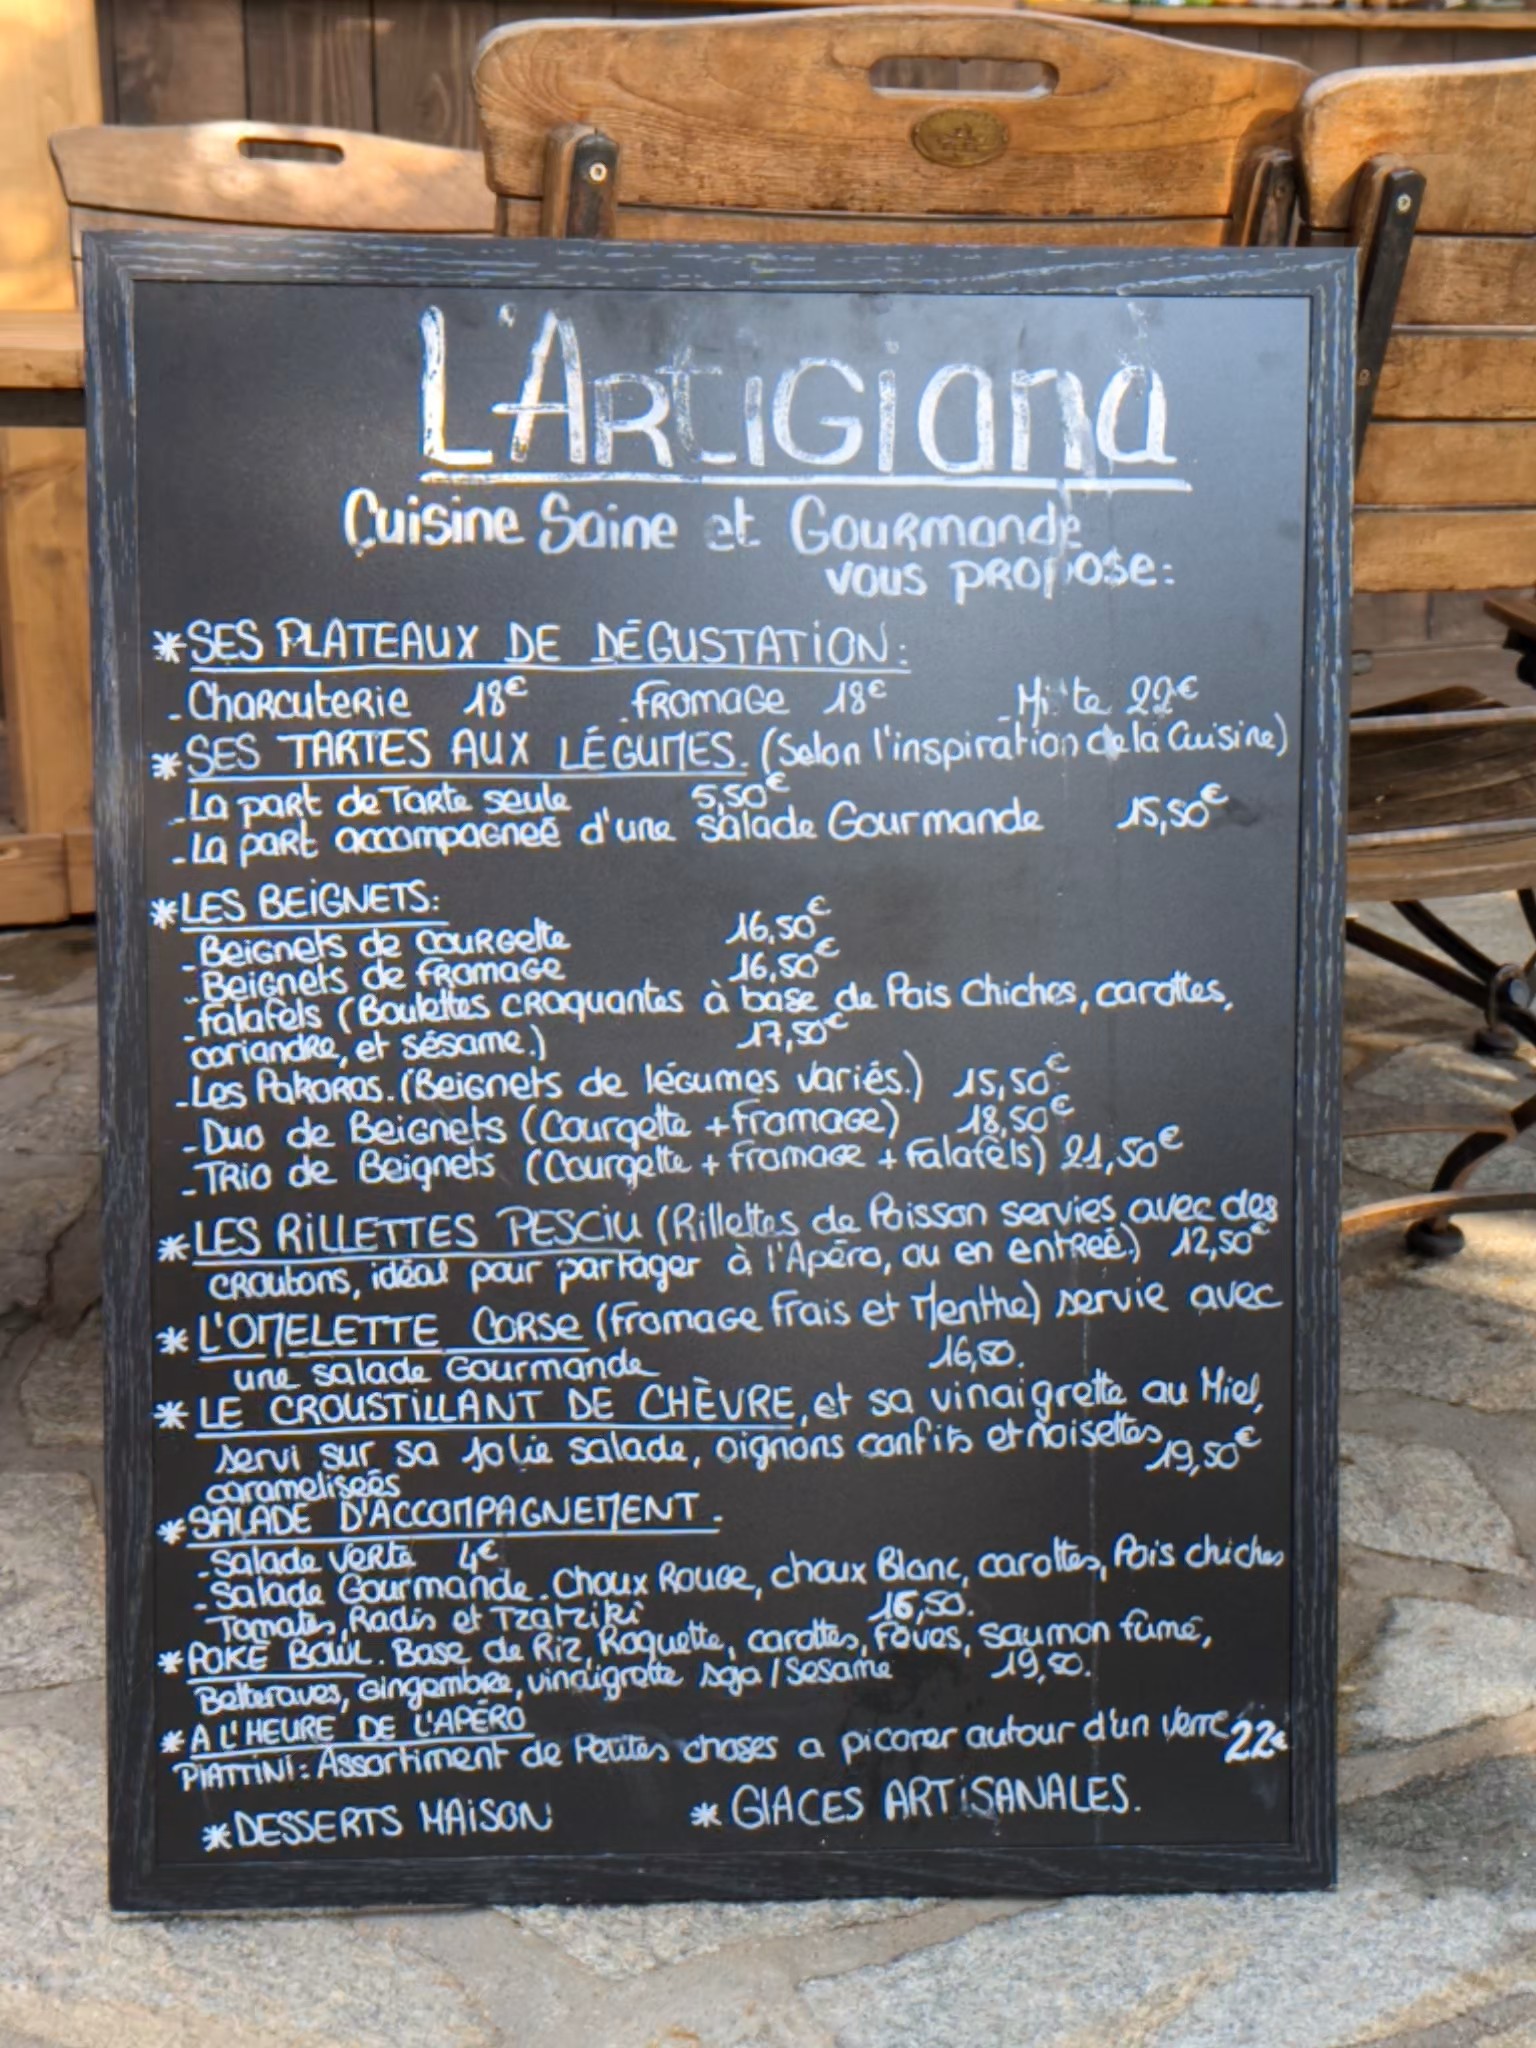 L'ARtiGiana
Cuisine Saine et GouRmande
vous pRopose:
*SES PLATEAUX DE DÉGUSTATiON:
-ChaRcuteRie 18€ -fRomaGe 18€ -Mixte 22€
*SES TARTES AUX LÉGUMES. (Selon l'inspiration de la Cuisine)
-La part de Tarte seule 5,50€
-La part accompagneé d'une salade Gourmande 15,50€
*LES BEiGNETS:
-BeiGnets de couRGette 16,50€
-BeiGnets de fRomaGe 16,50€
-falafels (Boulettes cRaquantes à base de Pois Chiches, carottes,
coriandRe, et sésame.) 17,50€
-Les Pakoras. (BeiGnets de léGumes variés.) 15,50€
-Duo de BeiGnets (Courgette + fromaGe) 18,50€
-TRio de Beignets (Courgette + fromaGe + falafels) 21,50€
*LES RiLLETTES PESCiU (Rillettes de Poisson servies avec des
cRoutons, idéal pour partager à l'Apéro, ou en entReé.) 12,50€
*L'OMELETTE CORSe (fromaGe frais et Menthe) servie avec
une salade Gourmande 16,50.
*LE CROUSTiLLANT DE CHÈVRE, et sa vinaigrette au Miel,
servi sur sa jolie salade, oignons confits et noisettes 19,50€
carameliseés
*SALADE D'ACCOMPAGNEMENT.
-Salade veRte 4€
-Salade Gourmande. Choux RouGe, choux Blanc, carottes, Pois chiches
Tomates, Radis et Tzatziki 16,50.
*POKE BOWL. Base de Riz, Roquette, carottes, Fèves, saumon fumé,
Betteraves, GinGembRe, vinaigrette soja / Sesame 19,50.
*A L'HEURE DE L'APÉRO
PiATTiNi: Assortiment de Petites choses a picorer autour d'un verre 22€
*DESSERTS MAiSON *GLACES ARTiSANALES.